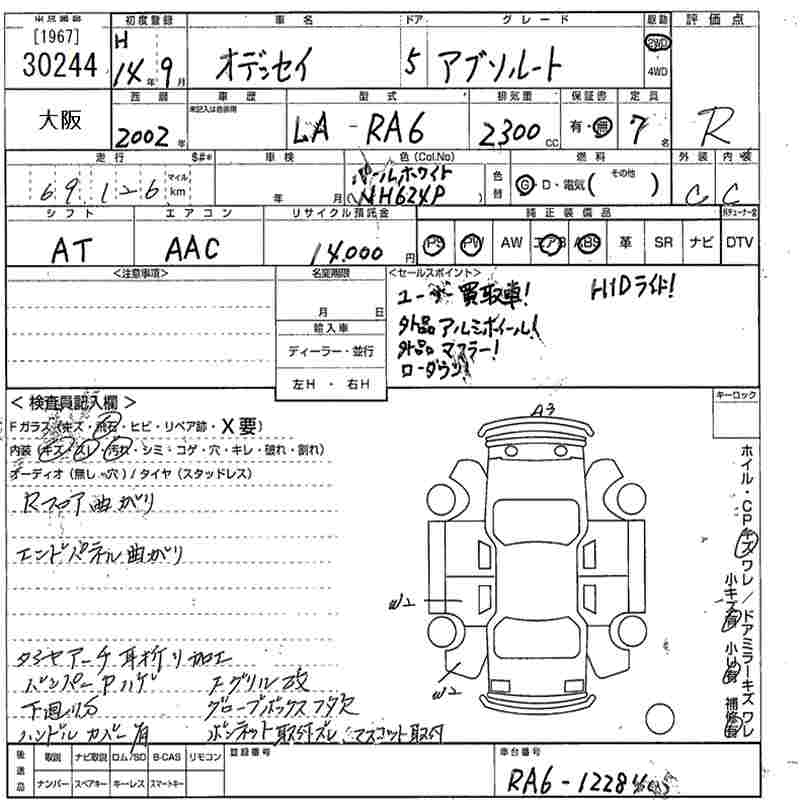 [1967]
30244
初度登録 車名 ドア グレード 駆動 評価点
H 14年 9月 オデッセイ 5 アブソルート 2WD
4WD
大阪
西暦 車歴 型式 排気量 保証書 定員
未記入は自家用
2002年 LA - RA6 2300cc 有・無 7名 R
走行 $#* 車検 色(Col.No) 燃料 外装 内装
69,126 マイル km 年 月 パールホワイト (NH624P) 色替 G・D・電気( その他 ) C C
シフト エアコン リサイクル預託金 純正装備品
AT AAC 14,000円 PS PW AW エアB ABS 革 SR ナビ DTV
<注意事項> 名変期限 <セールスポイント>
月 日
ユーザー買取車! HIDライト!
輸入車
外品アルミホイール!
ディーラー・並行
外品マフラー!
左H ・ 右H
ローダウン
<検査員記入欄> キーロック
Fガラス(キズ・飛石・ヒビ・リペア跡・X要)
A3
内装(キズ・スレ・汚れ・シミ・コゲ・穴・キレ・破れ・割れ)
オーディオ(無し・穴)/タイヤ(スタッドレス)
Rフロア曲がり
エンドパネル曲がり
W2
タイヤアーチ耳折り加工
バンパーPハゲ Fグリル改
W2
下廻りS グローブボックスフタ欠
ハンドルカバー有 ボンネット取付ズレ、マスコット取付
ホイル・CPキズワレ/ドアミラーキズワレ
後送品 取説 ナビ取説 ロム/SD B-CAS リモコン 登録番号 車台番号
ナンバー スペアキー キーレス スマートキー
RA6-12284